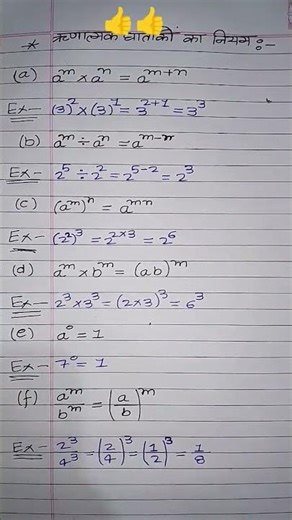 * ऋणात्मक घातांकों का नियम :-
(a) a^m × a^n = a^(m+n)
Ex- (3)² × (3)¹ = 3^(2+1) = 3³
(b) a^m ÷ a^n = a^(m-n)
Ex- 2⁵ ÷ 2² = 2^(5-2) = 2³
(c) (a^m)^n = a^(mn)
Ex- (2²)³ = 2^(2×3) = 2⁶
(d) a^m × b^m = (ab)^m
Ex- 2³ × 3³ = (2×3)³ = 6³
(e) a⁰ = 1
Ex- 7⁰ = 1
(f) a^m/b^m = (a/b)^m
Ex- 2³/4³ = (2/4)³ = (1/2)³ = 1/8